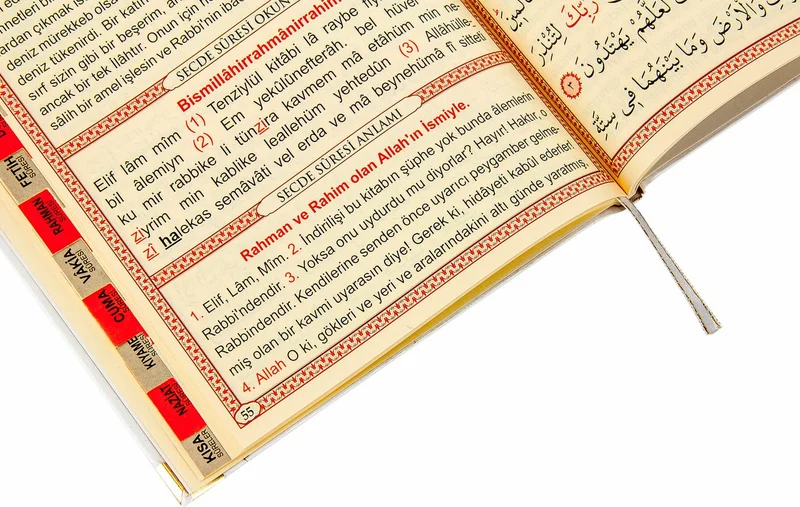 netleri bir
ardan çıkmak is
deniz mürekkeb olsa
deniz tükenirdi. Bir kat
sırf sizin gibi bir beşerim, an
ancak bir tek İlâhtır. Onun için h
sâlih bir amel işlesin ve Rabbi'nin iba
SECDE SÛRESİ OKUN
Bismillâhirrahmânirrahîm
Elif lâm mîm (1) Tenziylül kitâbi lâ raybe fiy
bil âlemiyn (2) Em yekûlûnefterâh. bel hüve
ku mir rabbike li tünzira kavmem mâ etâhüm min ne-
ziyrim min kablike leallehüm yehtedûn (3) Allâhülle-
zî halekas semâvâti vel erda ve mâ beynehümâ fî sitteti
SECDE SÛRESİ ANLAMI
Rahman ve Rahim olan Allah'ın İsmiyle.
1. Elif, Lâm, Mîm. 2. İndirilişi bu kitabın şüphe yok bunda âlemlerin
Rabbi'ndendir. 3. Yoksa onu uydurdu mu diyorlar? Hayır! Haktır, o
Rabbindendir. Kendilerine senden önce uyarıcı peygamber gelme-
miş olan bir kavmi uyarasın diye! Gerek ki, hidâyeti kabûl ederler!
4. Allah O ki, gökleri ve yeri ve aralarındakini altı günde yaratmış,
55
رَبِّكَ لِتُنْذِرَ
لَعَلَّهُمْ يَهْتَدُونَ ٣
وَالْاَرْضَ وَمَا بَيْنَهُمَا فِى سِتَّةِ
FETİH SÛRESİ
RAHMAN SÛRESİ
VAKIA SÛRESİ
CUMA SÛRESİ
KIYAME SÛRESİ
NAZİAT SÛRESİ
KISA SÛRELER